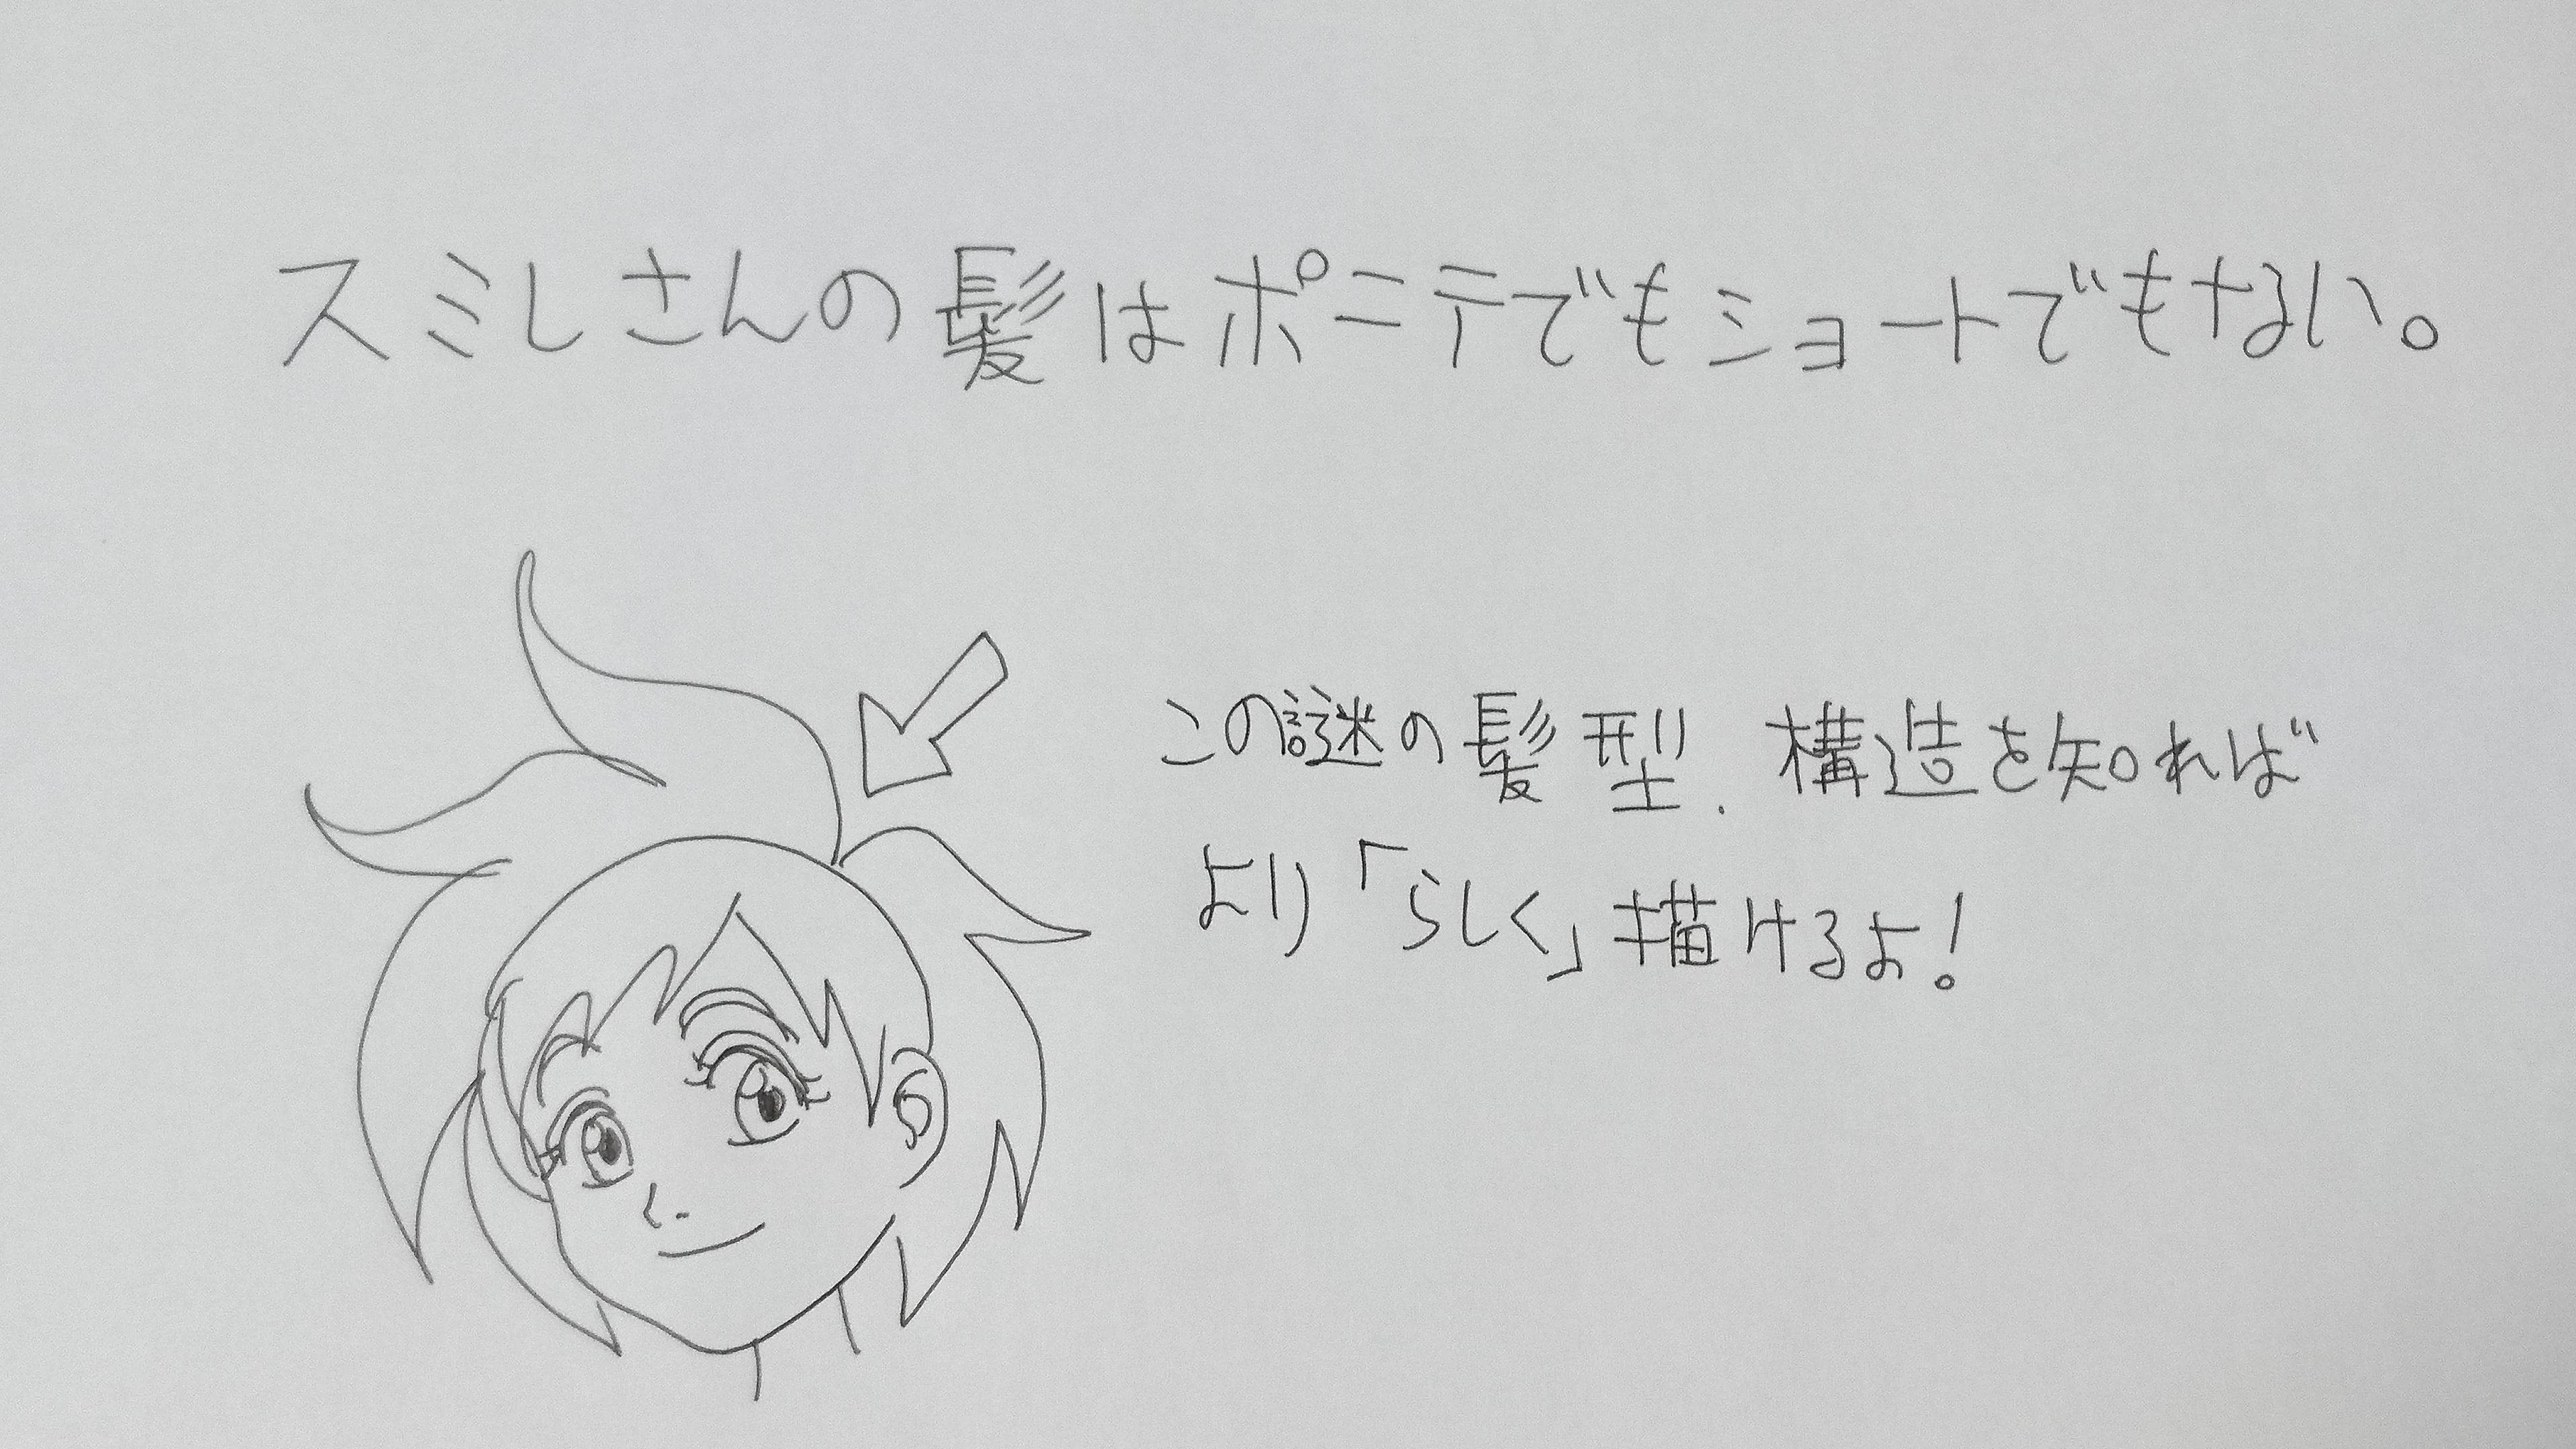 スミレさんの髪はポニテでもショートでもない。
この謎の髪型、構造を知れば
より「らしく」描けるよ!